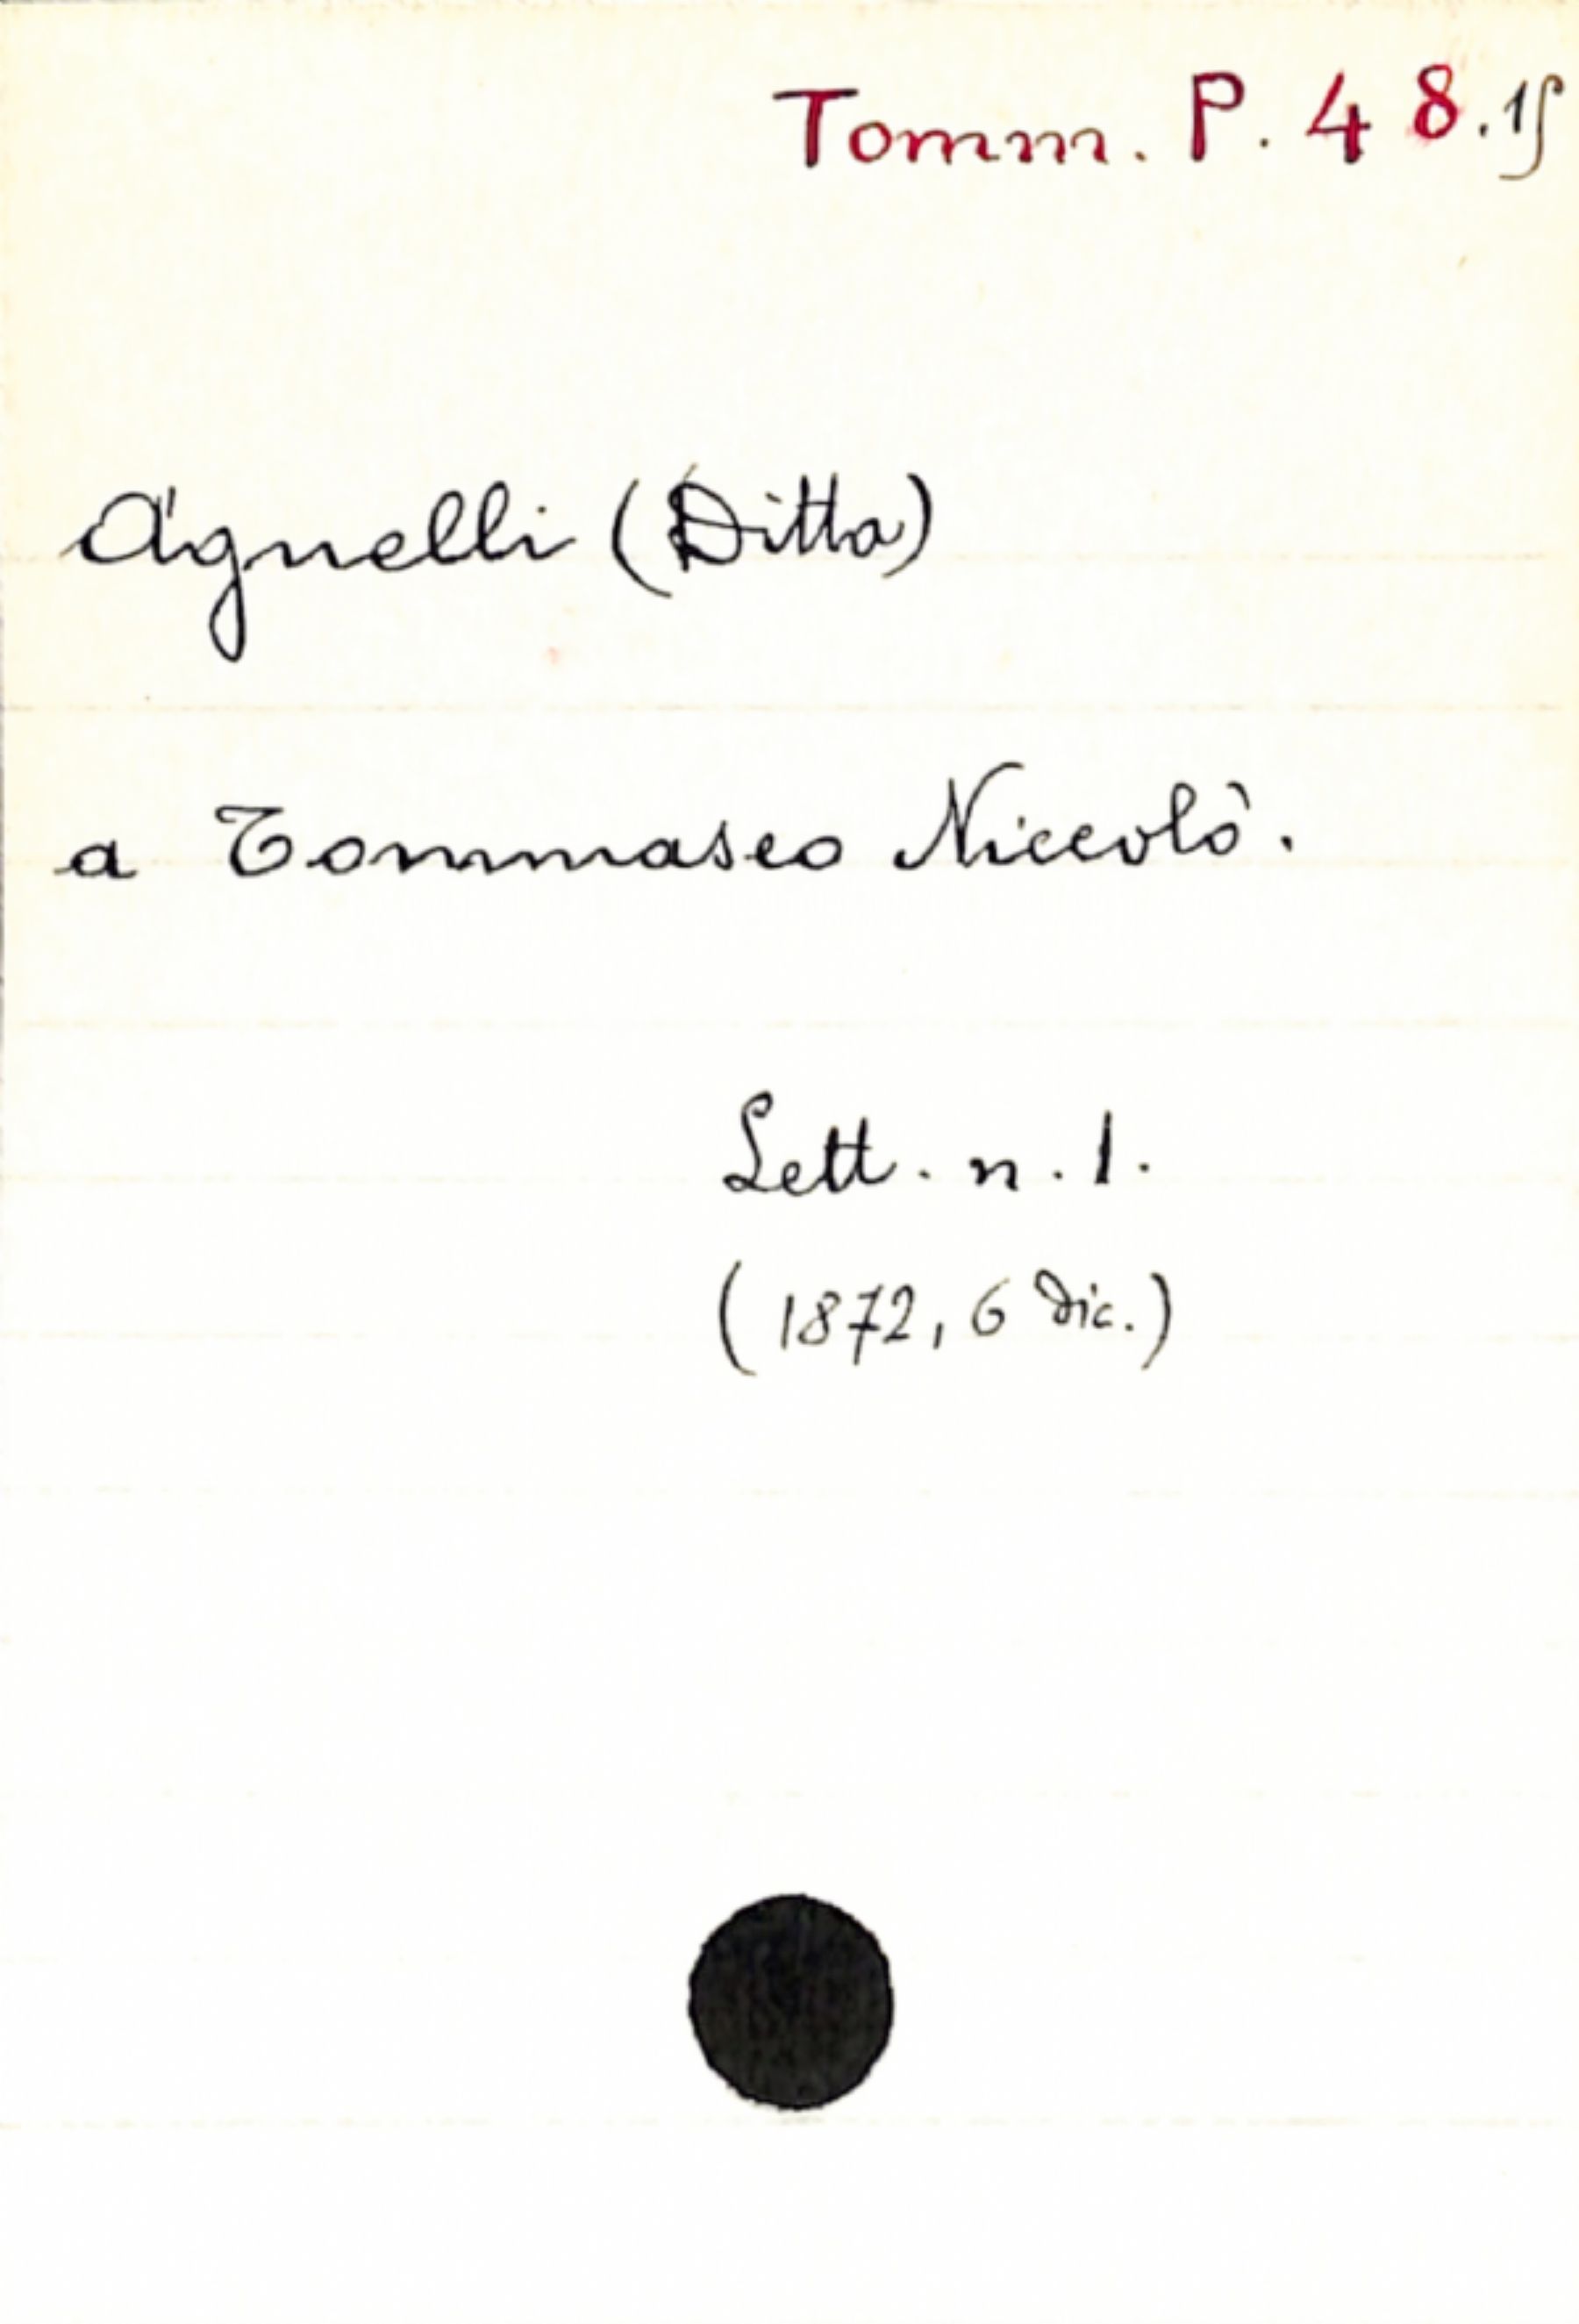 Tomm. P. 48.15
Agnelli (Ditta)
a Tommaseo Niccolò.
Lett. n. 1.
(1872, 6 dic.)